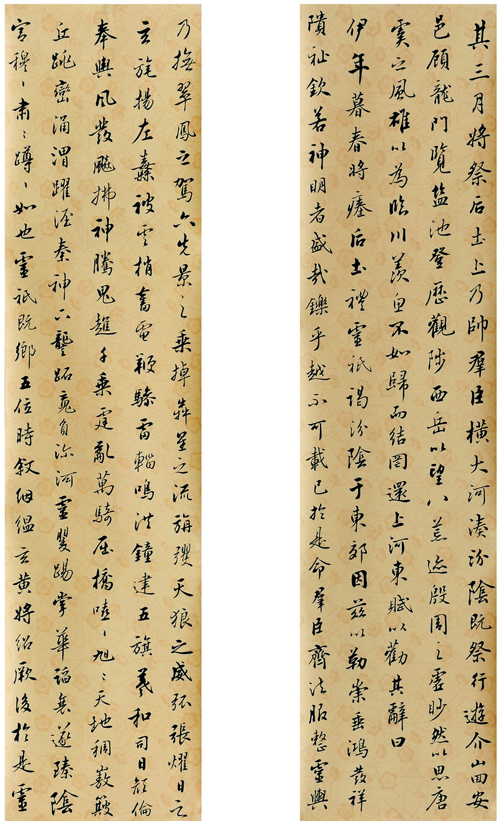 其三月將祭后土上乃帥羣臣橫大河湊汾陰既祭行遊介山回安
邑顧龍門覽鹽池登歷觀陟西岳以望八荒迹殷周之虛眇然以思唐
虞之風雄以為臨川羨魚不如歸而結罔還上河東賦以勸其辭曰
伊年暮春將瘞后土禮靈祇謁汾陰于東郊因茲以勒崇垂鴻發祥
隤祉欽若神明者盛哉鑠乎越不可載已於是命羣臣齊法服整靈輿
乃撫翠鳳之駕六先景之乘掉犇星之流旃彏天狼之威弧張燿日之
玄旄揚左纛被雲梢奮電鞭驂雷輜鳴洪鐘建五旗羲和司日顏倫
奉輿風發飈拂神騰鬼趡千乘霆亂萬騎屈橋嘻々旭々天地稠嶅簸
丘跳巒涌渭躍涇秦神下讋跖魂負沴河靈矍踢掌華蹈衰遂臻陰
宮穆々肅々蹲々如也靈祇既鄉五位時敘絪縕玄黃將紹厥後於是靈